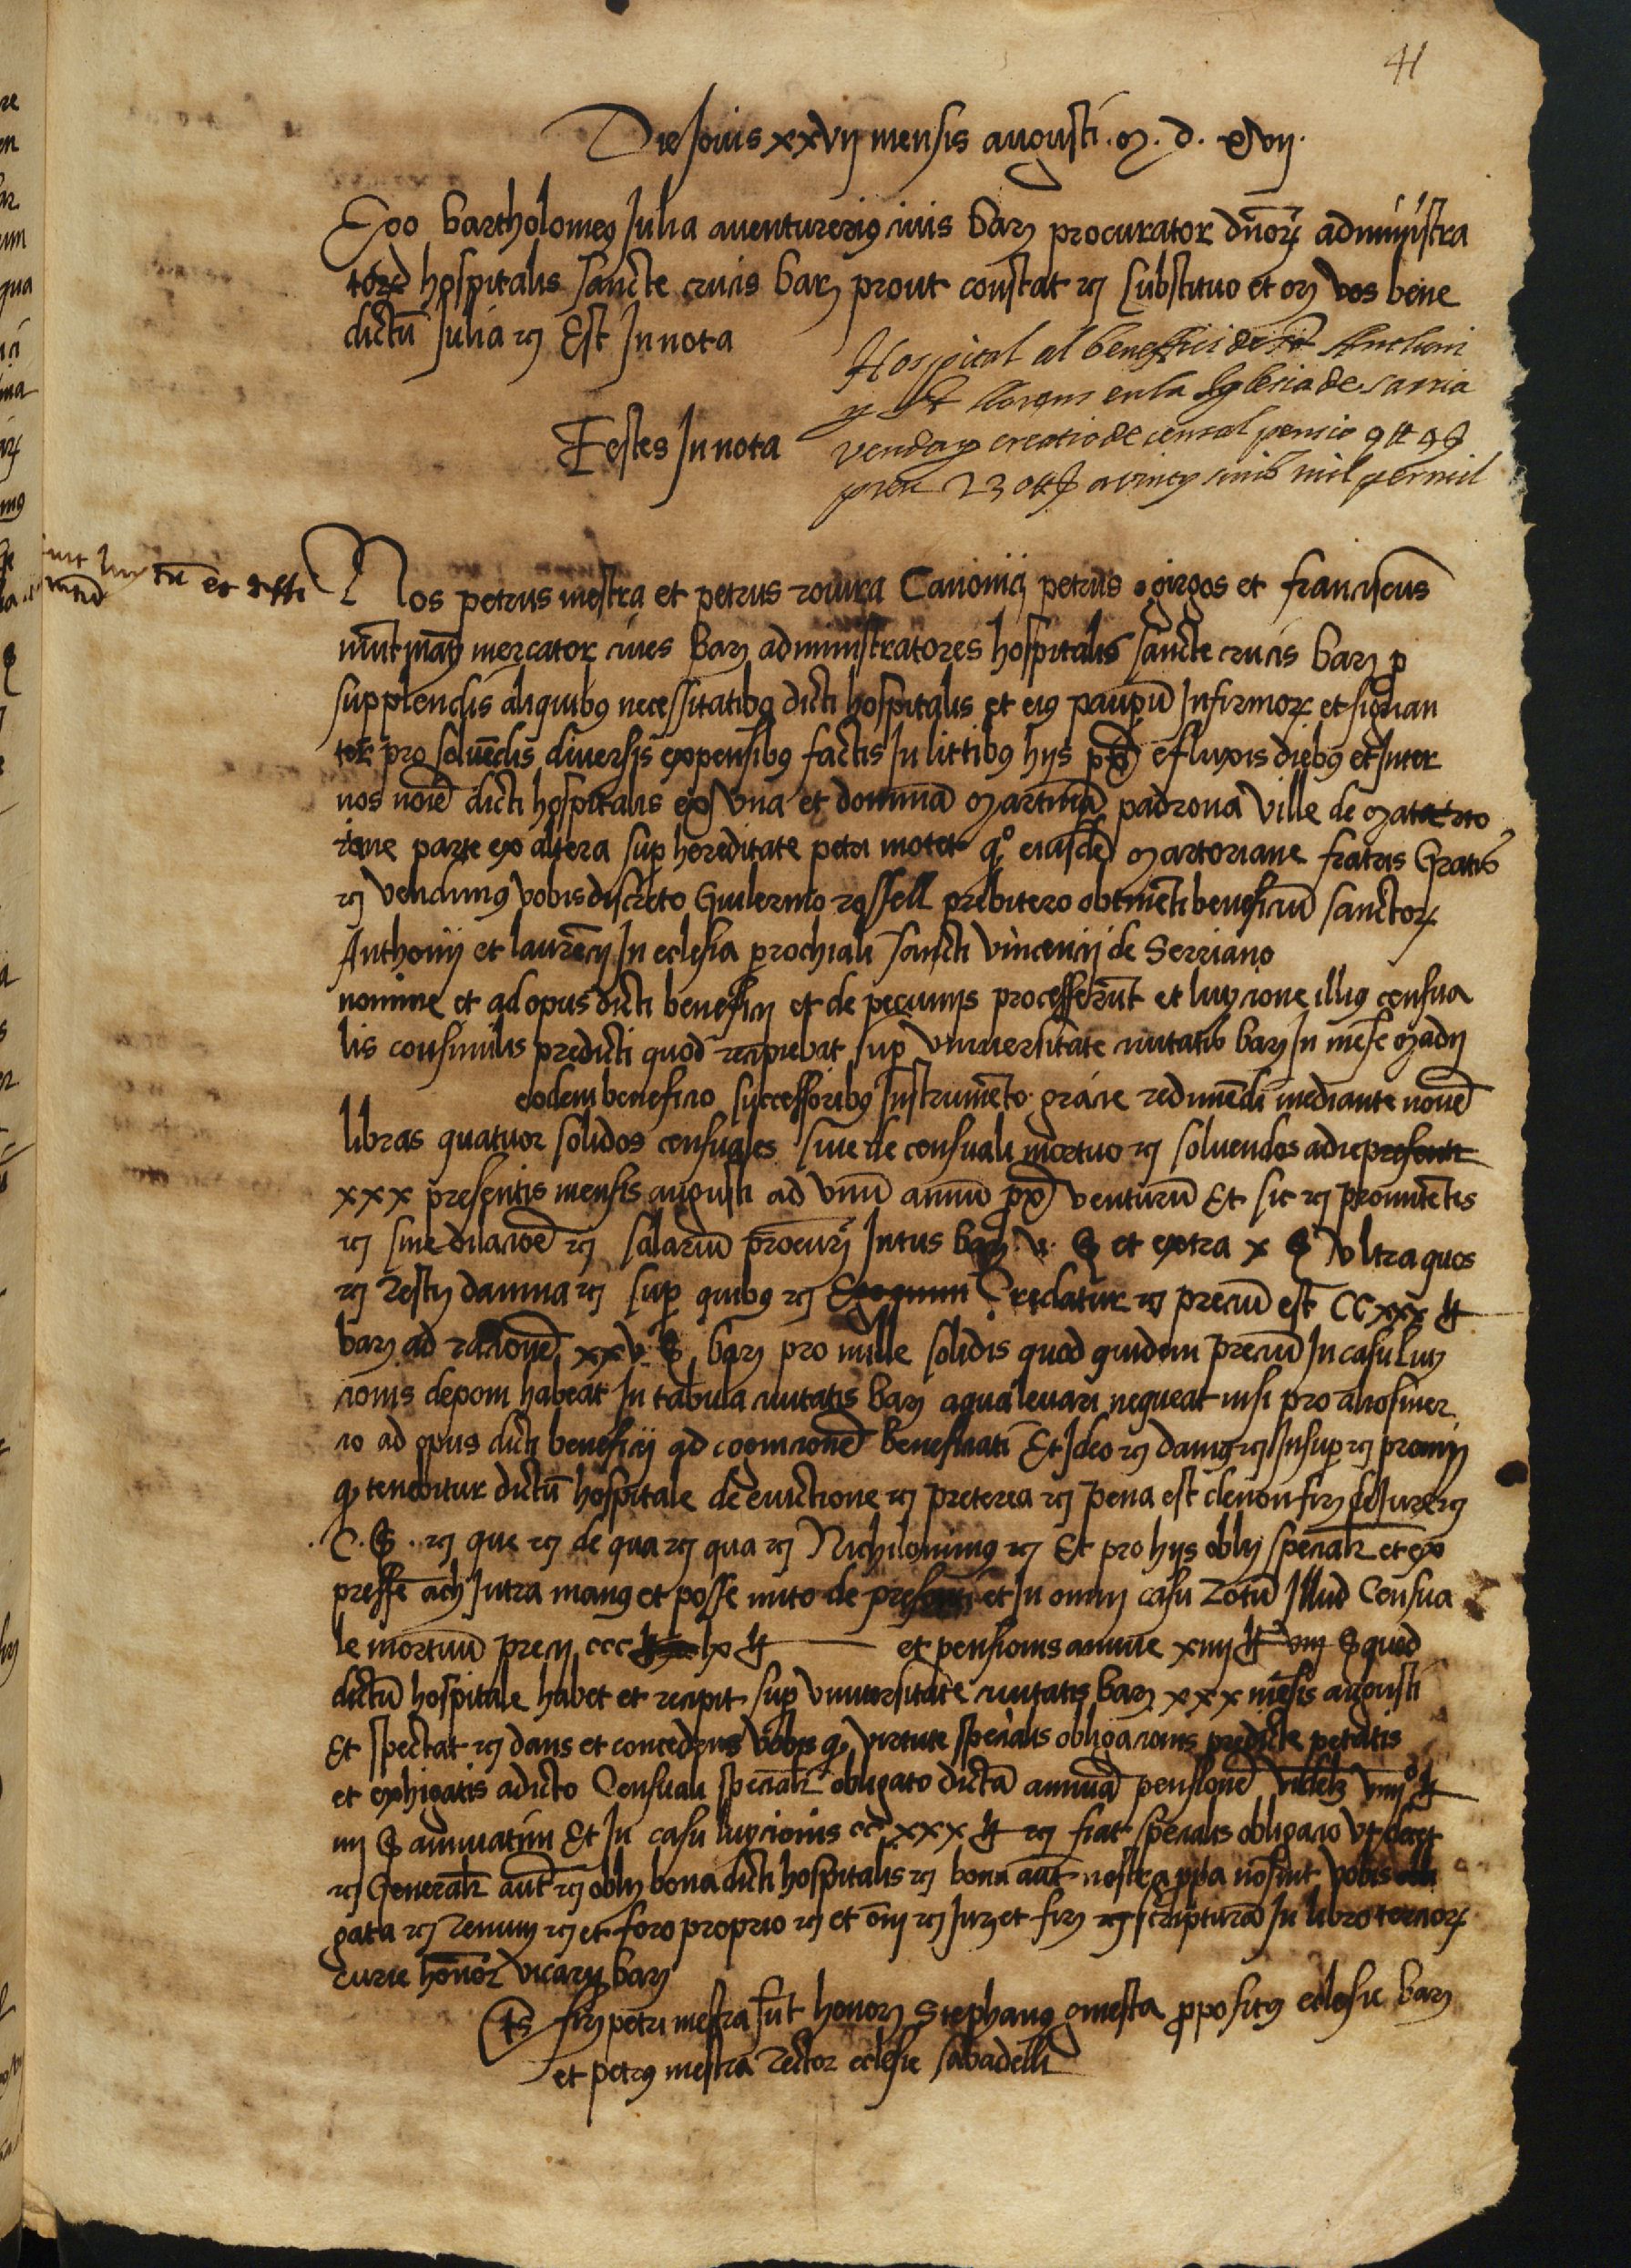 41
Die Jovis xxvij mensis augusti . M . d . xvij .
Ego bartholomeus Julia aventurerius civis bar procurator dnor administra
tor hospitalis sancte crucis bar prout constat rc substituo et or vos bene
dictu Julia rc Est In nota
Hospital al benefici de st Anthoni
y st llorens en la Iglesia de sarria
venda y creatio de censal pensio 9 ll 4 s
preu 230 ll a vinty sinc mil per mil
Testes In nota
tu et
Nos petrus mestra et petrus rovira Canonici petrus girgos et franciscus
mercator cives bar administratores hospitalis sancte crucis bar p
supplendis aliquibus necessitatibus dicti hospitalis et eius paupu Infirmor et signan
ter pro solvedis diversis expensibus factis In littibus hijs px efluxis diebus et Inter
nos noie dicti hospitalis ex una et domina martina padrona ville de
parte ex altera sup hereditate petri motet q° eiusde martoriane fratris Gratis
rc vendimus vobis discreto Guilermo rossell prebitero obtineti beneficiu sanctor
Anthonij et laurecij In eclesia parochiali sancti vincencij de Serriano
nomine et ad opus dicti beneficij et de pecunijs processerut et luycione illius censua
lis consimilis predicti quod recipiebat sup universitate civitatis bar In mese madij
eodem beneficio successoribus Instrumeto gracie redimedi mediante nove
libras quatuor solidos censuales sive de censuali mortuo rc solvendos a die presenti
xxx presentis mensis augusti ad unu annu px venturu Et sic rc promitetis
rc sine dilacioe rc salariu procur Intus bar v s et extra x s ultra quos
rc resty damna rc sup quibus rc Credatur rc preciu est CCxxx ll
bar ad racione xxv s bar pro mille solidis quod quidem preciu In casu luy
cionis deponi habeat In tabula civitatis bar a qua levari nequeat nisi pro alio smer
cio ad opus dicti beneficij ad cognicione beneficiati Et Ideo rc damus rc Insup rc promij
q tenebitur dictu hospitale de evictione rc preterea rc pena est de non fir de Jure rc
. C . s . rc que rc de qua rc qua rc Nichilominus rc Et pro hijs obly specialr et ex
presse Intra manus et posse mito de presenti et In omni casu totu Illud Censua
le mortuu precij ccc lx ll et pensionis annue xiiij ll viij s quod
dictu hospitale habet et recipit sup universitate civitatis bar xxx mesis augusti
Et spectat rc dans et concedens vobis q virtute specialis obligacionis predicte petatis
et exhigatis a dicto Censuali specialr obligato dicta annua pensione videlz viiij ll
iiij s annuatim Et In casu luycionis cc xxx ll rc fiat specialis obligacio ut decet
rc Generalr aut rc obly bona dicti hospitalis rc bona aut nostra ppa no sint vobis obli
gata rc renuny rc et foro proprio rc et om rc Jur et fir rc scriptura In libro tercior
curie honor vicarij bar
Ts fir petri mestra sut honor Stephanus mesta ppositus eclesie bar
et petrus mestra rector eclesie sabadelli